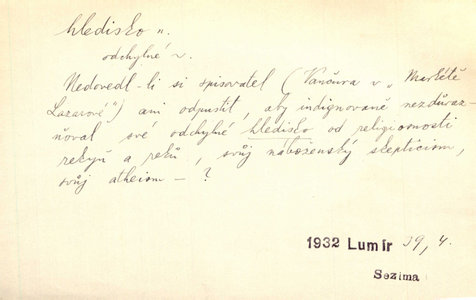 hledisko n.
odchylné ~.
Nedovedl-li si spisovatel (Vančura v „Markétě
Lazarové") ani odpustit, aby indignovaně nezdůraz-
ňoval své odchylné hledisko od religiosnosti
reků a , svůj náboženský skepticism,
svůj atheism – ?
1932 Lumír 59, 4.
Sezima